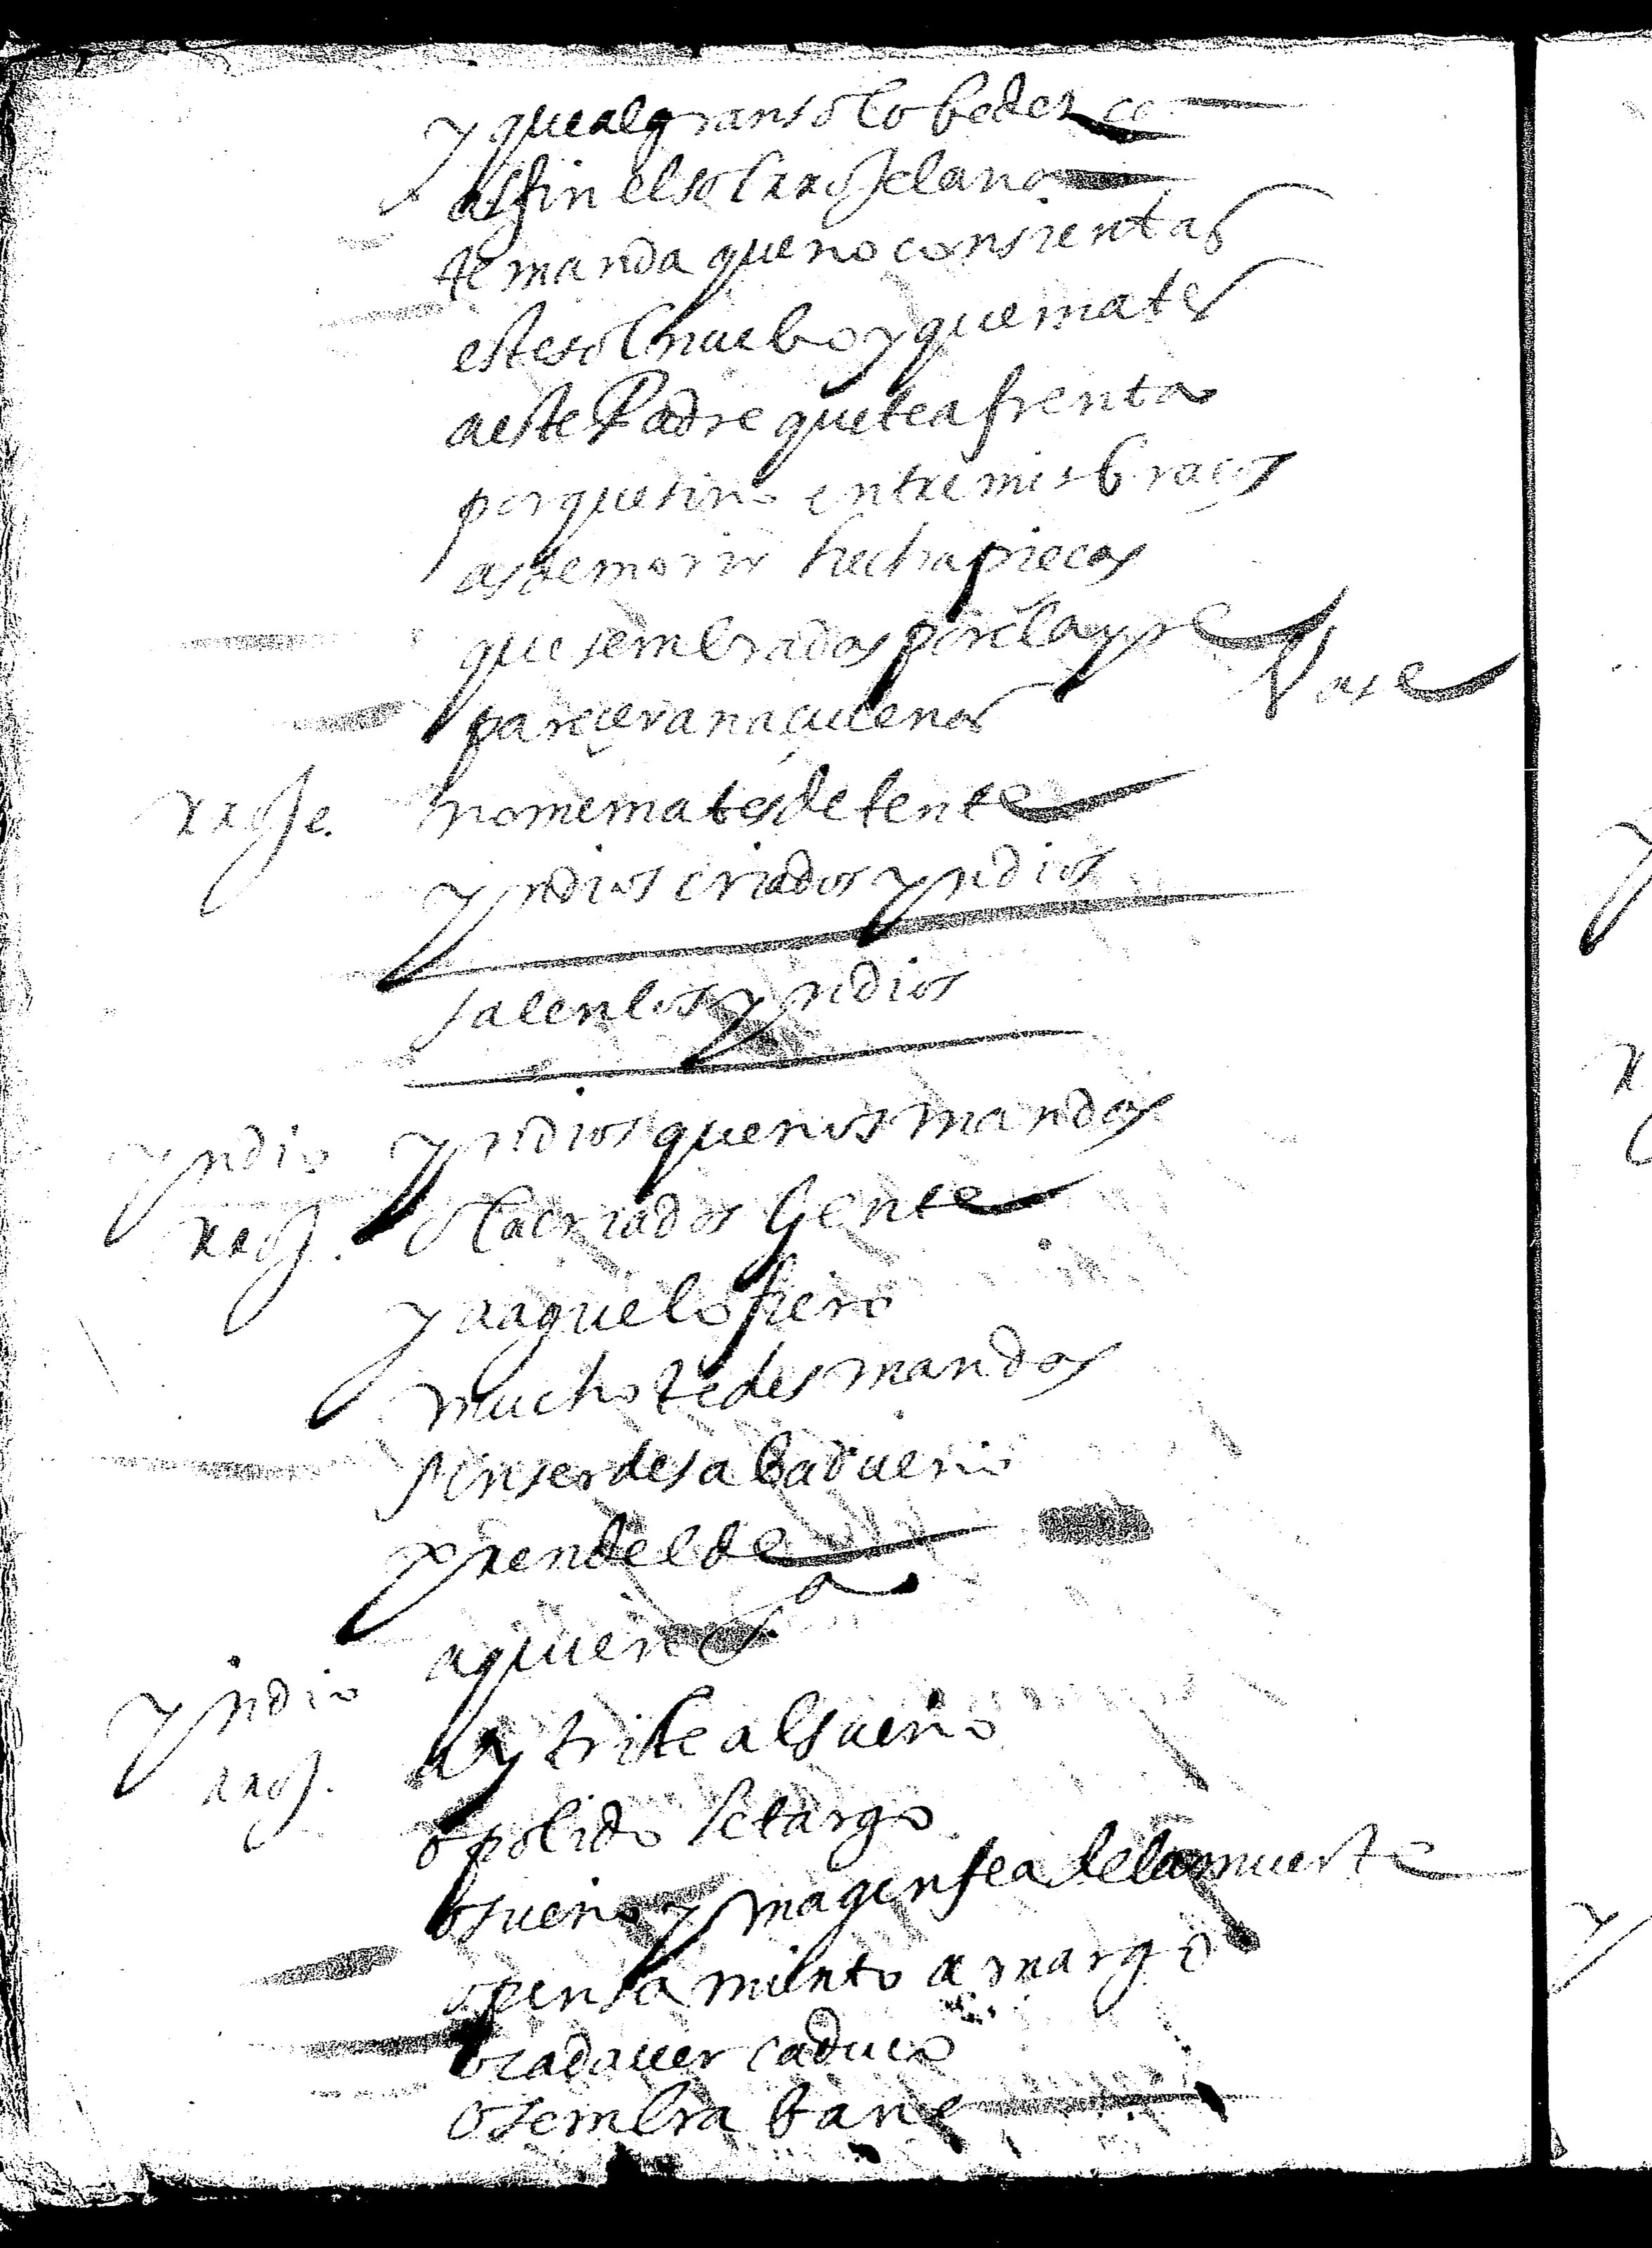 y que al gran sol obedezca
al fin el sol
te manda que no consientas
este sol nuebo y que mates
a este Padre que te afrenta
porque sino entre mis braços
as de morir hecha pieças
que sembradas por el ayre Vase
pareceran açucenas
no me mates detente
yndios criados yndios
salen los yndios
yndio yndios que nos mandas
ola criados Gente
y aaquelo fiero
mucho te desmandas
sin ser desa ba dueño
prendelde
yndio a quien
ay triste al sueño
o polido letargo
o sueño ymagen fea de la muerte
o pensamiento amargo
o cadauer caduco
o sembra